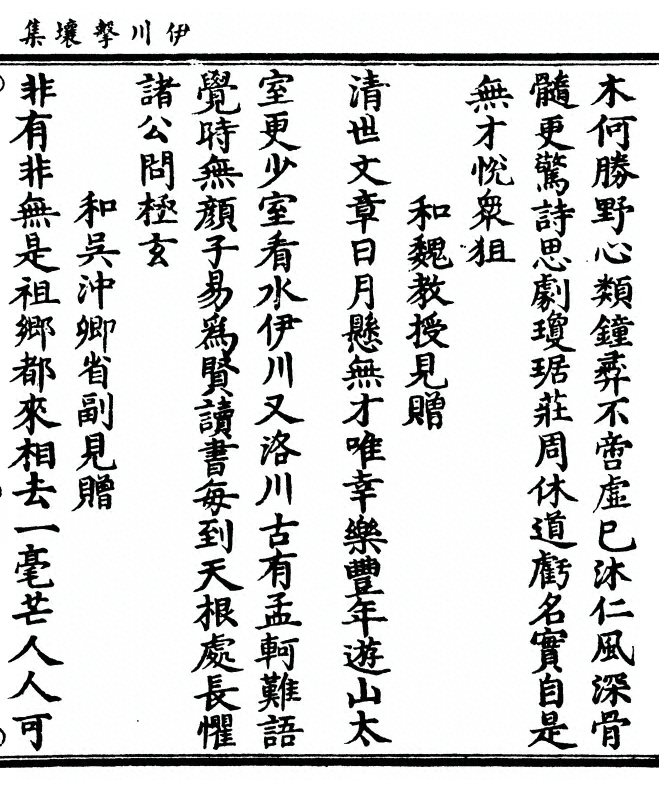 伊川擊壤集
木何勝野心類鐘彞不啻虛已沐仁風深骨
髓更驚詩思劇瓊琚莊周休道虧名實自是
無才悅衆狙
和魏教授見贈
清世文章日月懸無才唯幸樂豐年遊山太
室更少室看水伊川又洛川古有孟軻難語
覺時無顏子易爲賢讀書每到天根處長懼
諸公問極玄
和吳沖卿省副見贈
非有非無是祖鄉都來相去一毫芒人人可